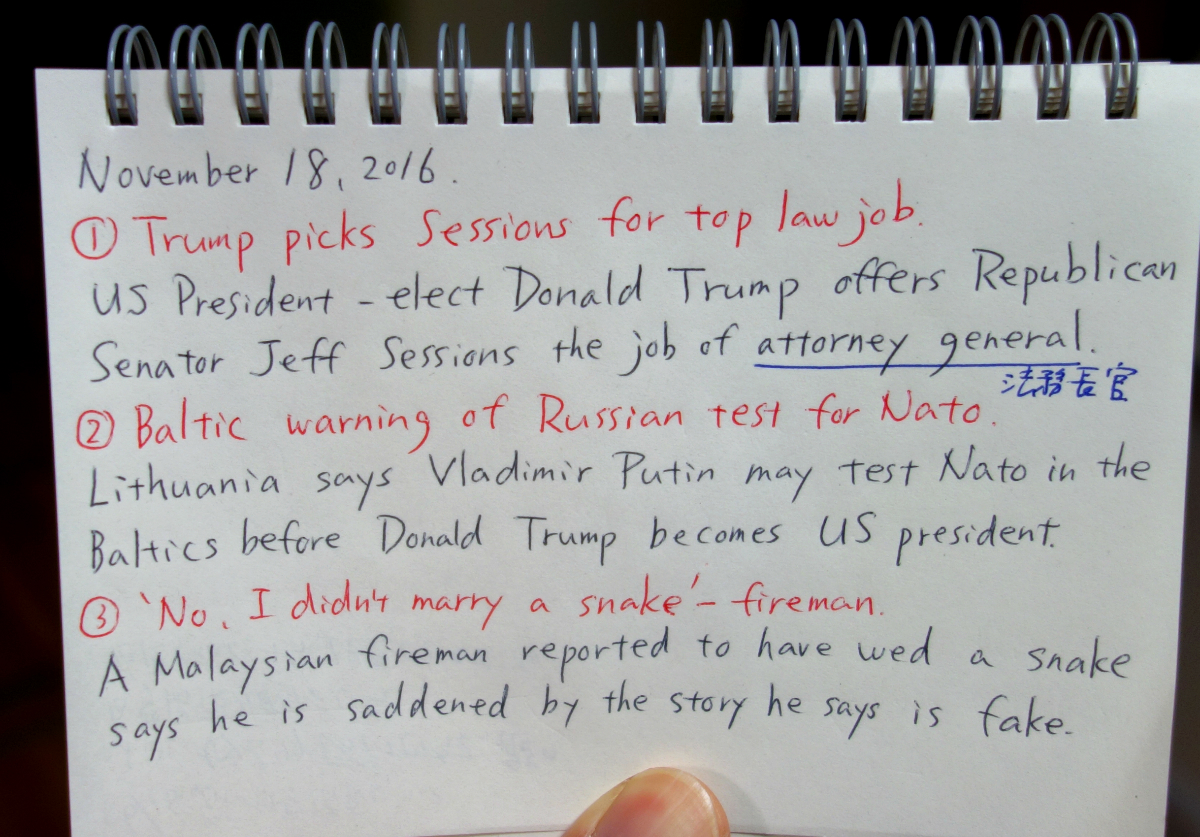 November 18, 2016.
① Trump picks Sessions for top law job.
US President-elect Donald Trump offers Republican
Senator Jeff Sessions the job of attorney general.
法務長官
② Baltic warning of Russian test for Nato.
Lithuania says Vladimir Putin may test Nato in the
Baltics before Donald Trump becomes US president.
③ 'No, I didn't marry a snake' - fireman.
A Malaysian fireman reported to have wed a snake
says he is saddened by the story he says is fake.